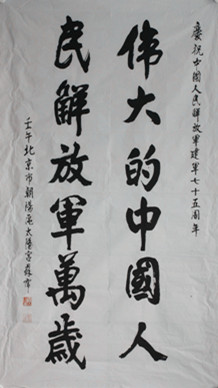 慶祝中國人民解放軍建軍七十五周年
偉大的中國人
民解放軍萬歲
壬午北京市朝陽